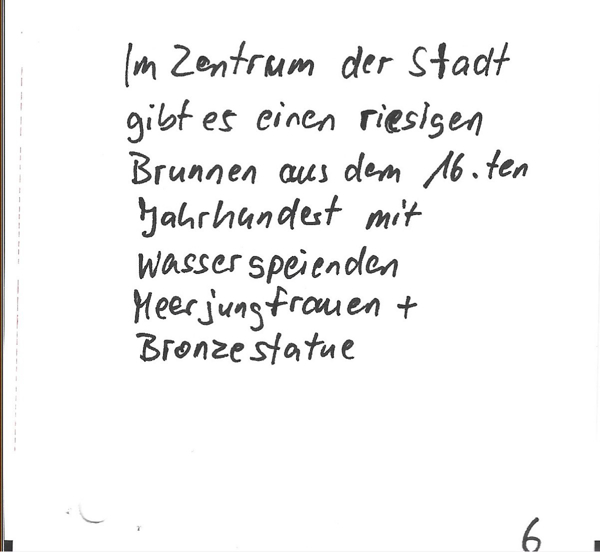 Im Zentrum der Stadt
gibt es einen riesigen
Brunnen aus dem 16.ten
Jahrhundert mit
wasserspeienden
Meerjungfrauen +
Bronzestatue
6